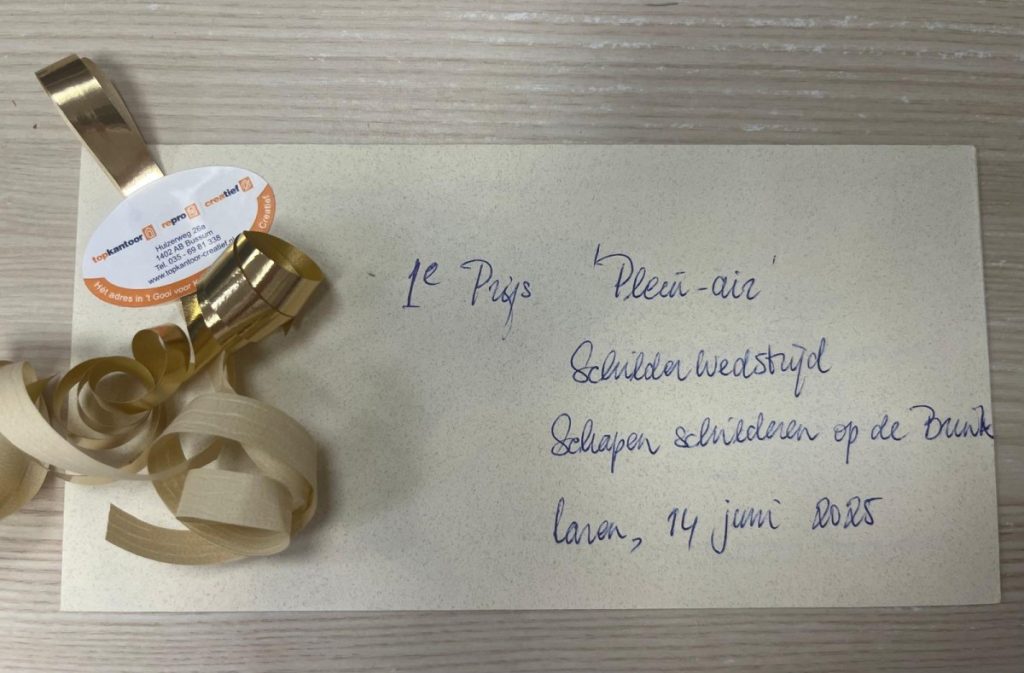 topkantoor repro creatief
Huizerweg 26a
1402 AB Bussum
Tel. 035 - 69 81 338
www.topkantoor-creatief.n
Hét adres in 't Gooi voor K Creatief.
1e Prijs 'Plein-air'
Schilder wedstrijd
Schapen schilderen op de Brink
laren, 14 juni 2025